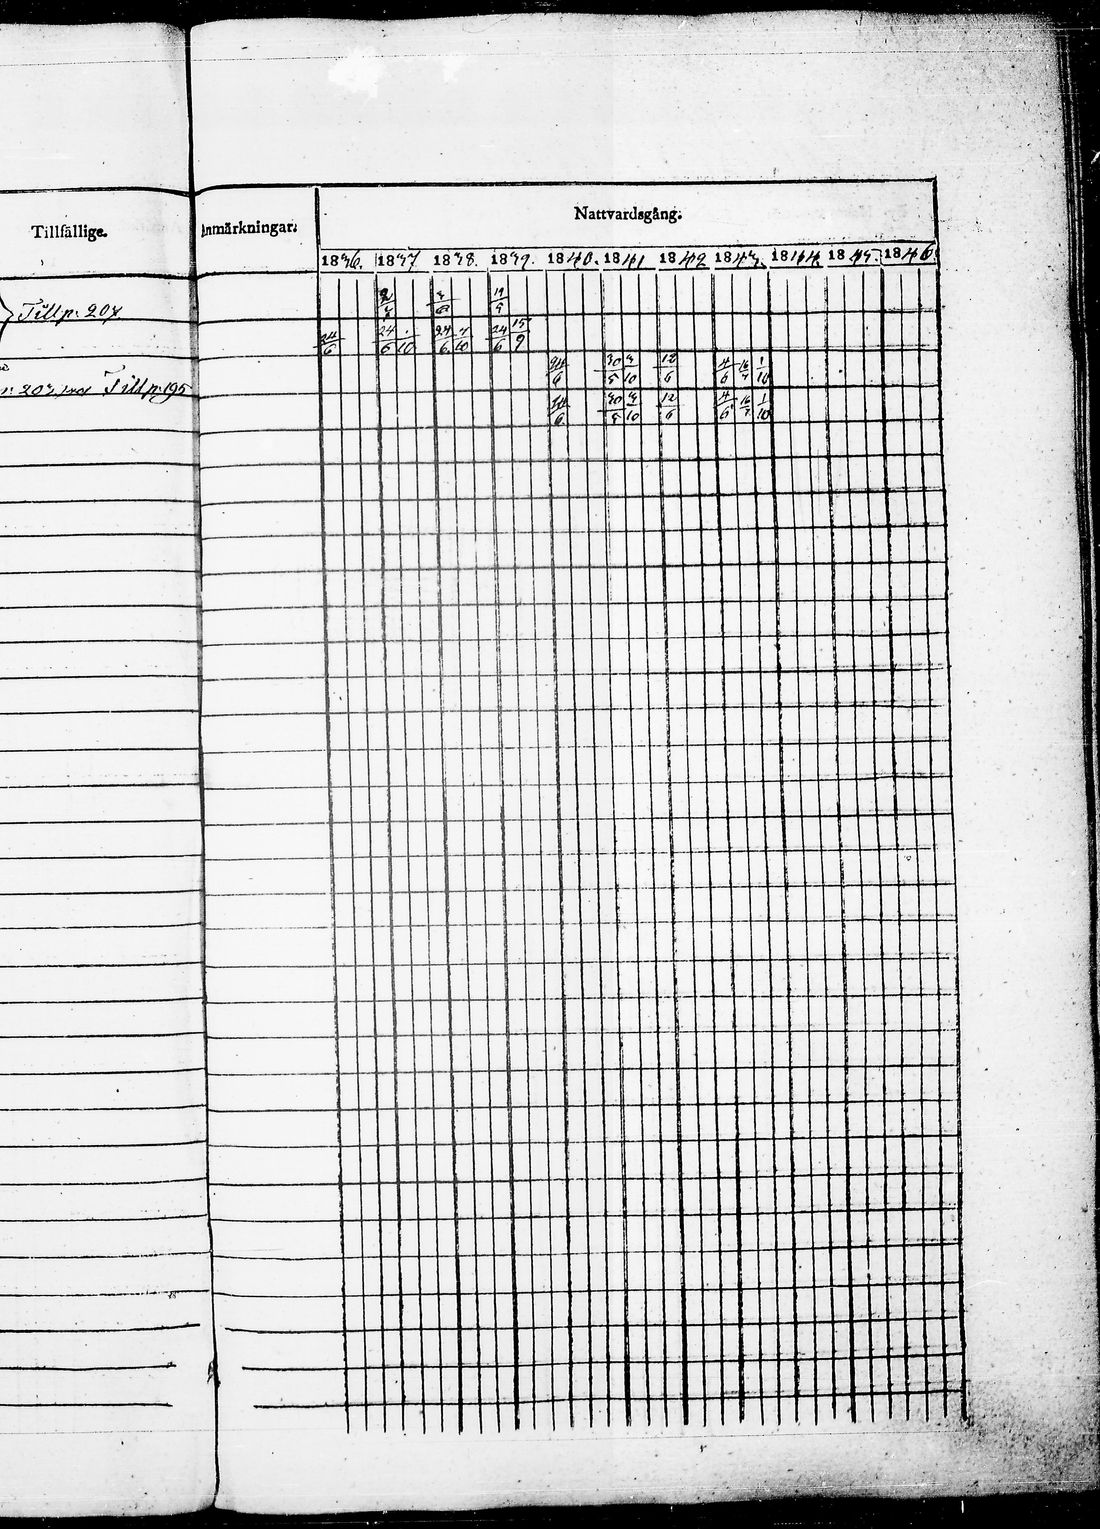 Tillfällige. Anmärkningar. Nattvardsgång.
1836. 1837. 1838. 1839. 1840. 1841 1842 1843. 1844. 1845. 1846.
Till p. 207. 3/6 19/5
24/6 24/6 1/10 24/6 7/10 24/6 15/9
24/6 30/5 3/10 12/6 4/6 16/7 1/10
203 Till p. 195
24/6 30/5 3/10 12/6 4/6 16/7 1/10